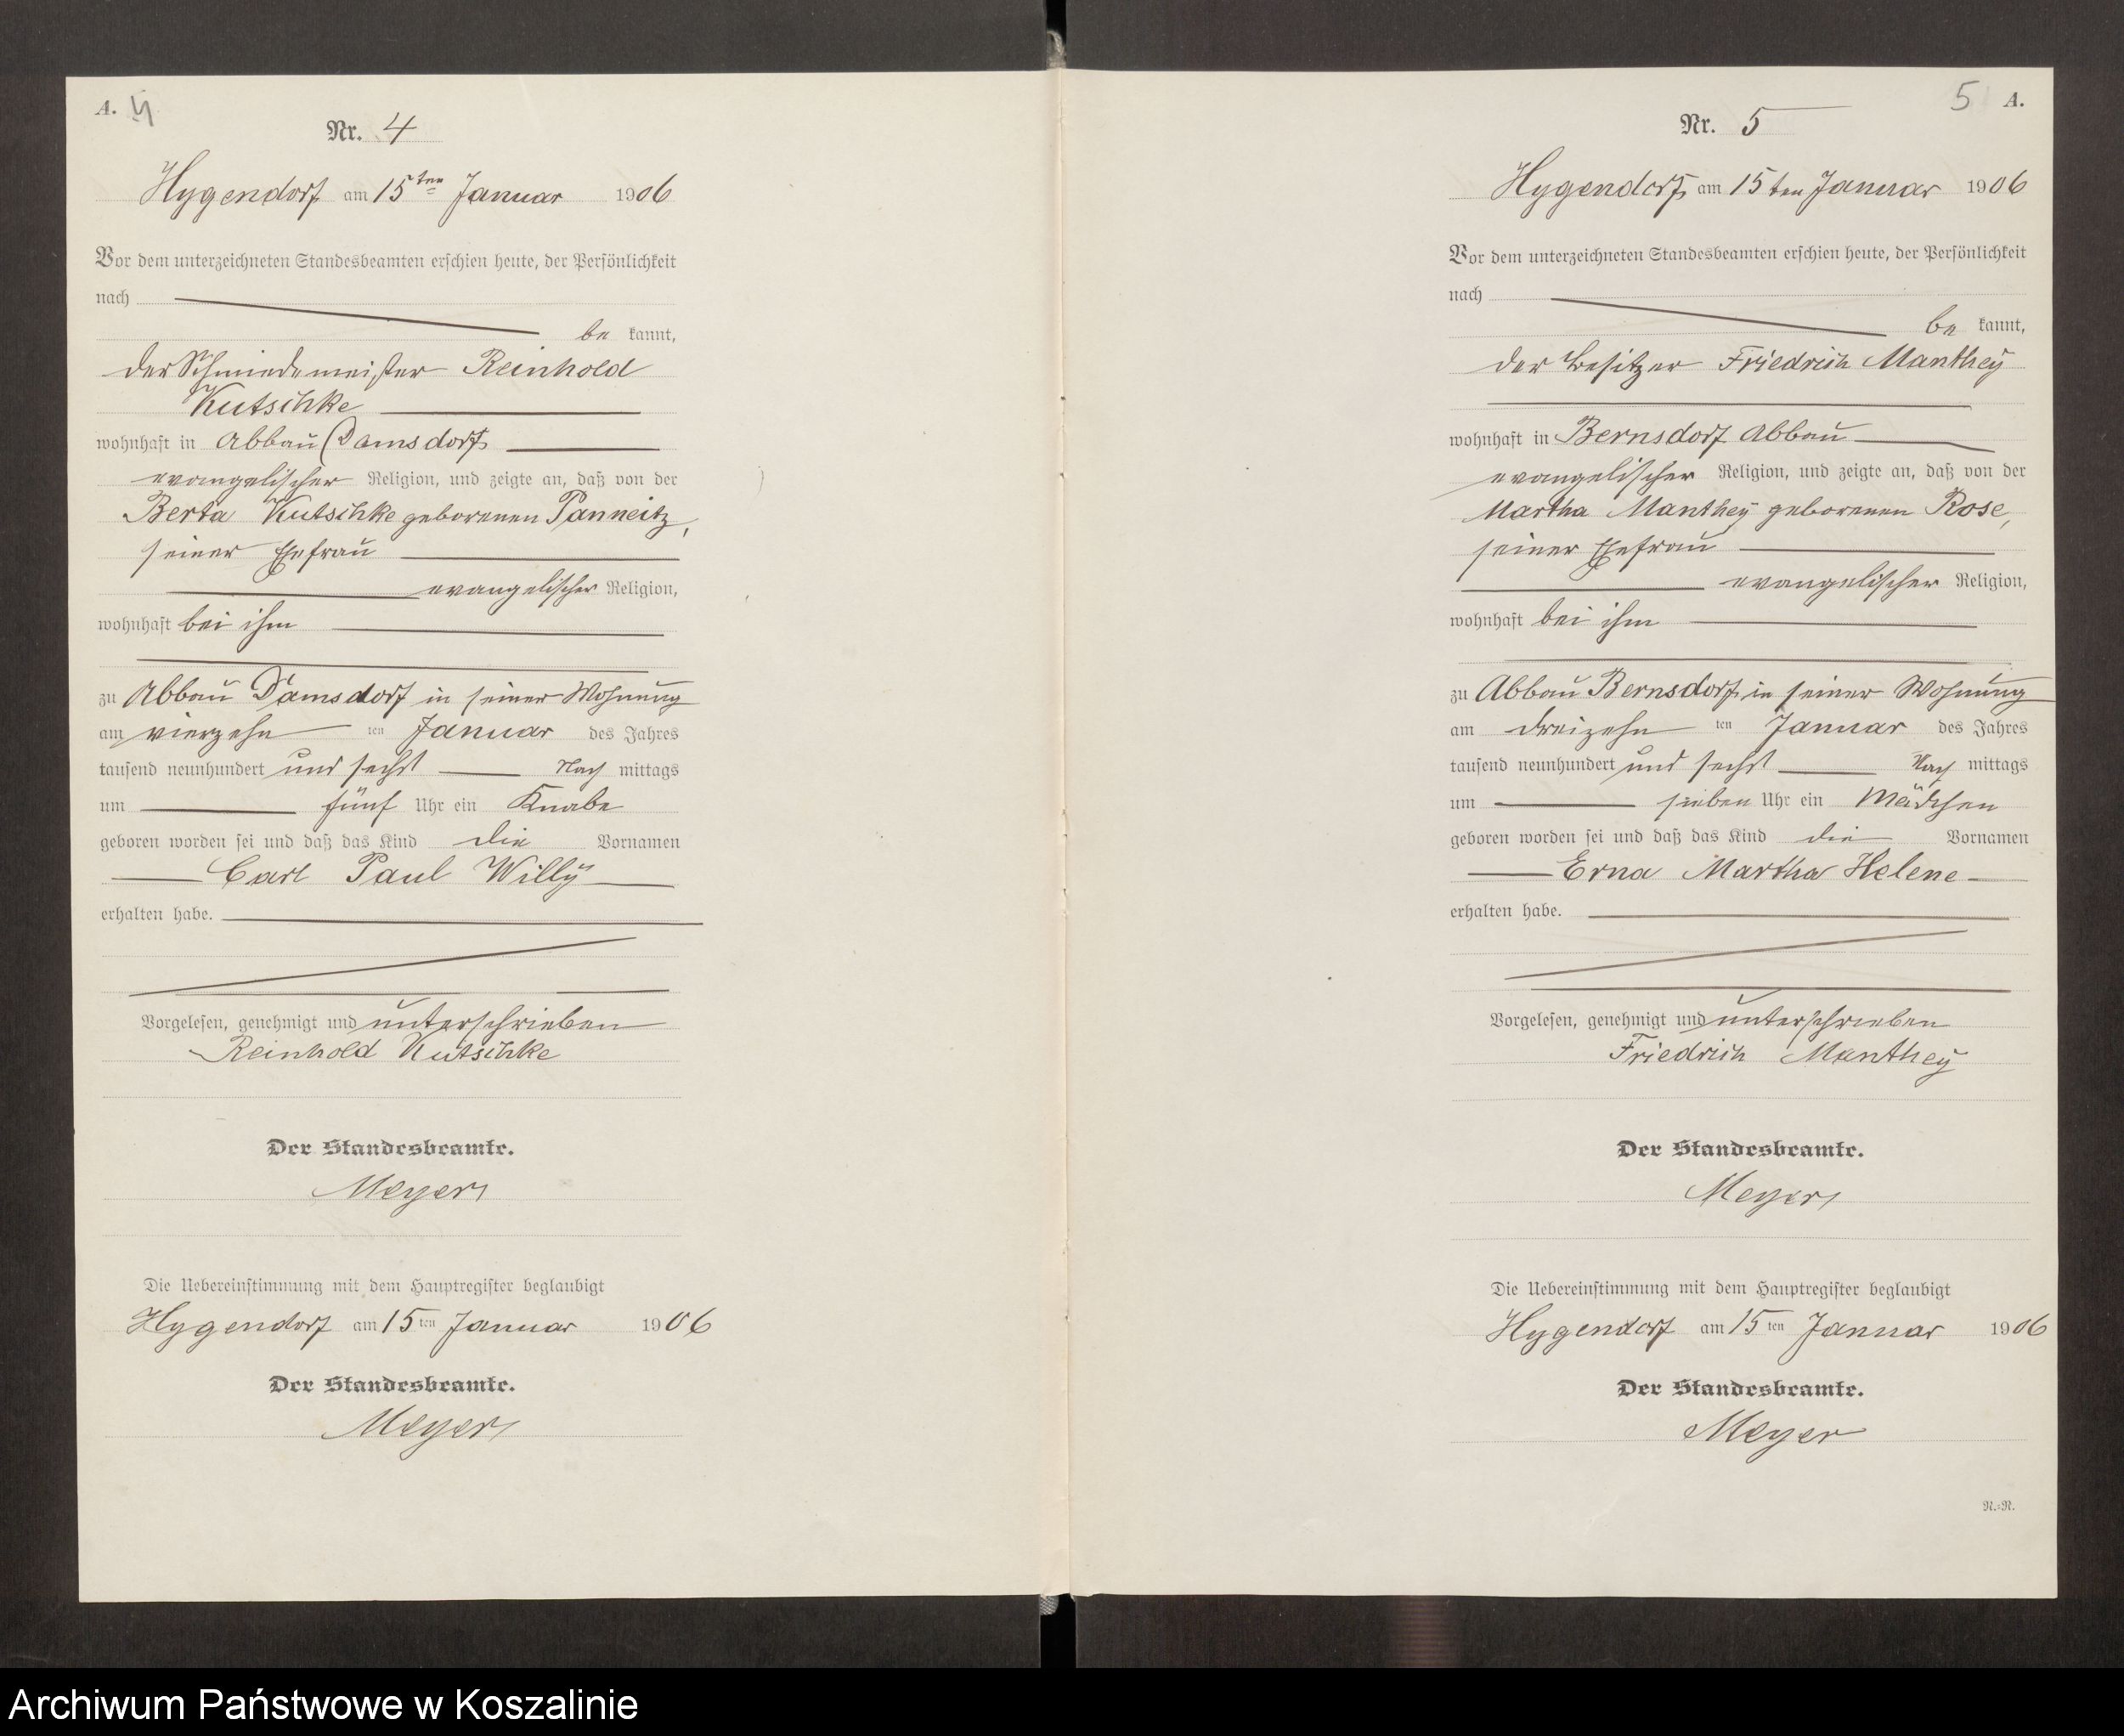 A. 4
Nr. 4
Hygendorf am 15ten Januar 1906
Vor dem unterzeichneten Standesbeamten erschien heute, der Persönlichkeit
nach
be kannt,
der Schmiedemeister Reinhold
Kutschke
wohnhaft in Abbau Damsdorf
evangelischer Religion, und zeigte an, daß von der
Berta Kutschke geborenen Panneitz,
seiner Ehefrau
evangelischer Religion,
wohnhaft bei ihm
zu Abbau Damsdorf in seiner Wohnung
am vierzehn ten Januar des Jahres
tausend neunhundert und sechs Nach mittags
um fünf Uhr ein Knabe
geboren worden sei und daß das Kind die Vornamen
Carl Paul Willy
erhalten habe.
Vorgelesen, genehmigt und unterschrieben
Reinhold Kutschke
Der Standesbeamte.
Meyer
Die Uebereinstimmung mit dem Hauptregister beglaubigt
Hygendorf am 15 ten Januar 1906
Der Standesbeamte.
Meyer
5 A.
Nr. 5
Hygendorf am 15ten Januar 1906
Vor dem unterzeichneten Standesbeamten erschien heute, der Persönlichkeit
nach
be kannt,
der Besitzer Friedrich Manthey
wohnhaft in Bernsdorf Abbau
evangelischer Religion, und zeigte an, daß von der
Martha Manthey geborenen Rose,
seiner Ehefrau
evangelischer Religion,
wohnhaft bei ihm
zu Abbau Bernsdorf in seiner Wohnung
am dreizehn ten Januar des Jahres
tausend neunhundert und sechs Nach mittags
um sieben Uhr ein Mädchen
geboren worden sei und daß das Kind die Vornamen
Erna Martha Helene
erhalten habe.
Vorgelesen, genehmigt und unterschrieben
Friedrich Manthey
Der Standesbeamte.
Meyer
Die Uebereinstimmung mit dem Hauptregister beglaubigt
Hygendorf am 15 ten Januar 1906
Der Standesbeamte.
Meyer
R.=R.
Archiwum Państwowe w Koszalinie